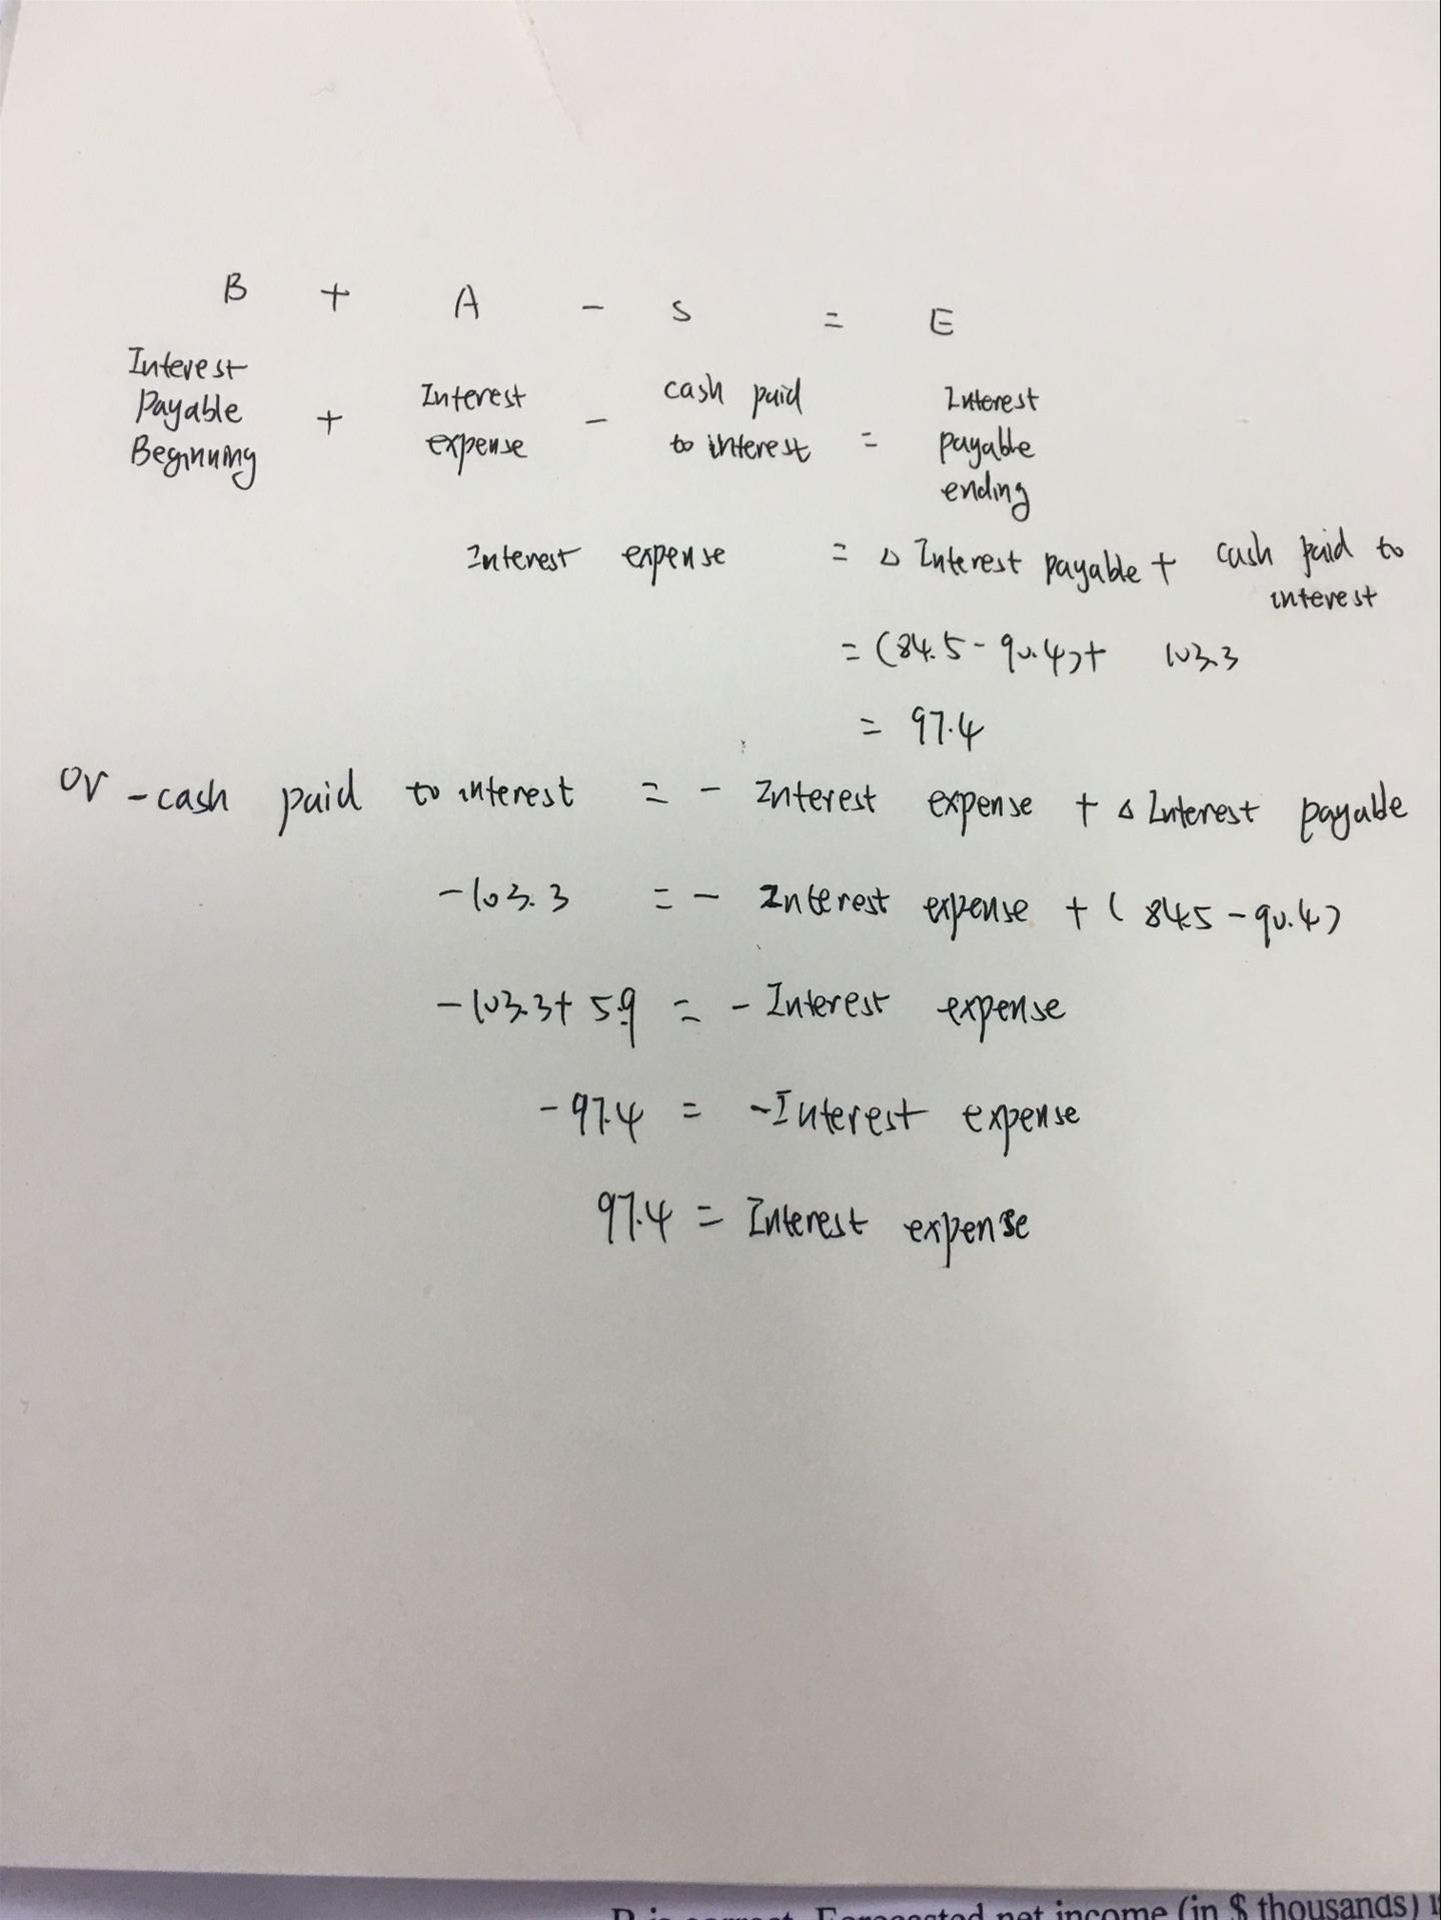 B + A - S = E
Interest Payable Beginning + Interest expense - cash paid to interest = Interest payable ending
Interest expense = Δ Interest payable + cash paid to interest
= (84.5 - 90.4) + 103.3
= 97.4
or - cash paid to interest = - Interest expense + Δ Interest payable
-103.3 = - Interest expense + (84.5 - 90.4)
-103.3 + 5.9 = - Interest expense
-97.4 = - Interest expense
97.4 = Interest expense
is correct. Forecasted net income (in $ thousands)